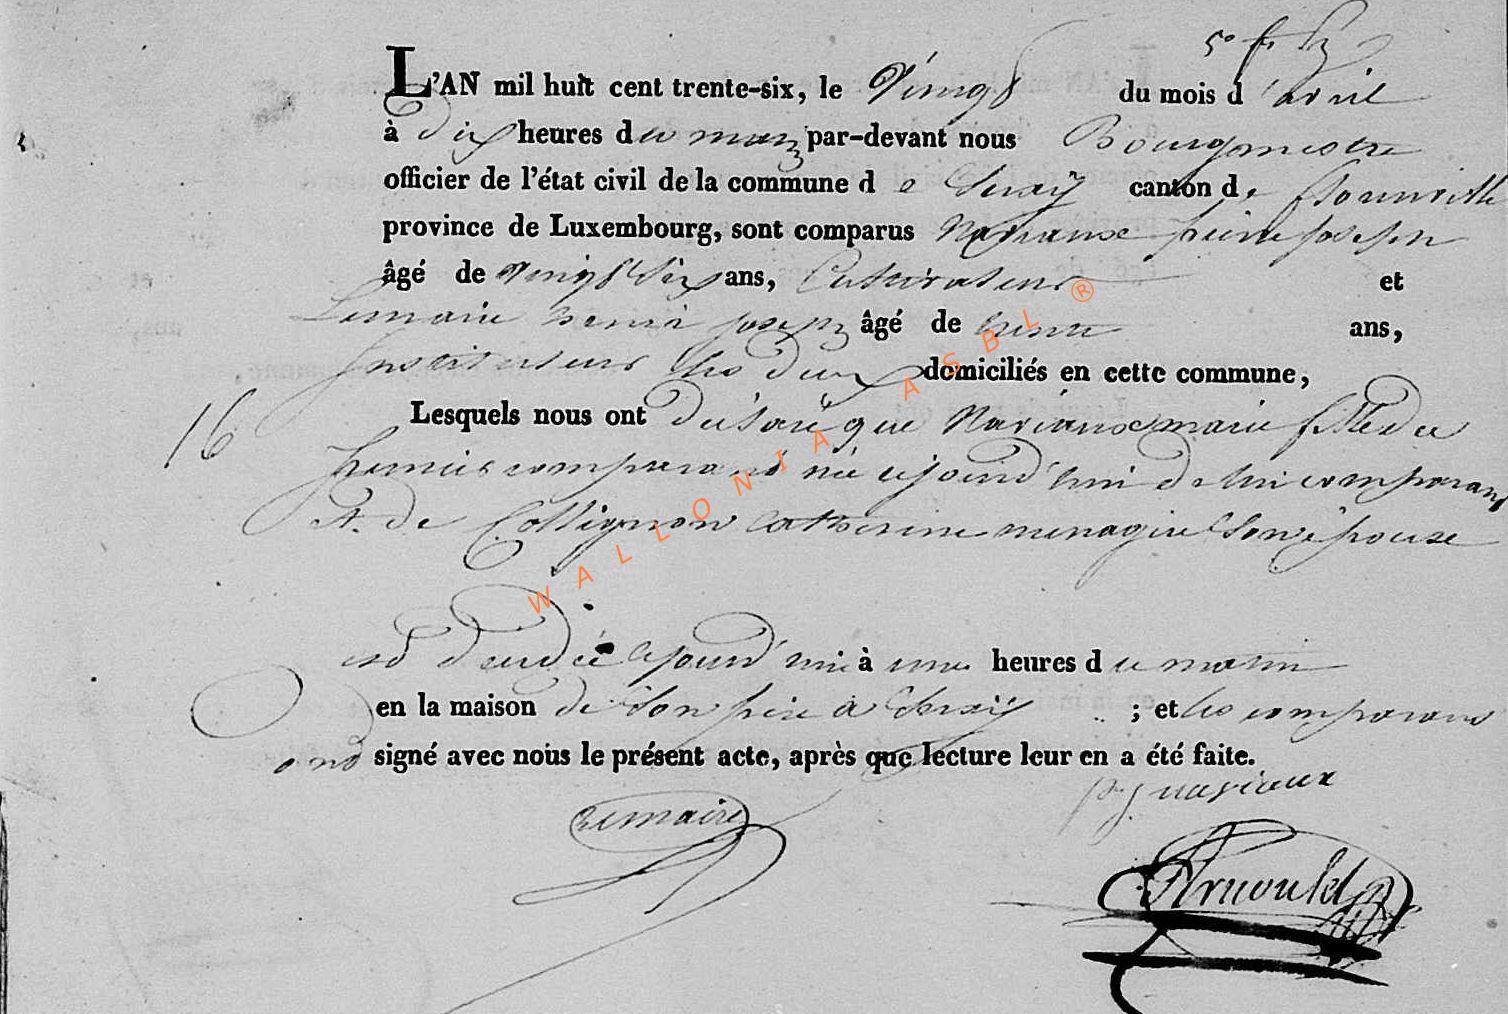 L'AN mil huit cent trente-six, le Vingt du mois d'avril
à dix heures du matin par-devant nous Bourgmestre
officier de l'état civil de la commune de canton de florenville
province de Luxembourg, sont comparus pierre joseph
âgé de Vingt Six ans, Cultivateur et
Lemaire henri joseph âgé de trente ans,
Instituteur les deux domiciliés en cette commune,
16 Lesquels nous ont déclaré que marie fille du
premier comparant née cejourd'hui de lui comparant
et de Collignon Catherine menagère Son épouse
est décédée cejourd'hui à une heures du matin
en la maison de Son père à ; et les comparans
ont signé avec nous le présent acte, après que lecture leur en a été faite.
Lemaire
Arnould
WALLONIA ASBL ®